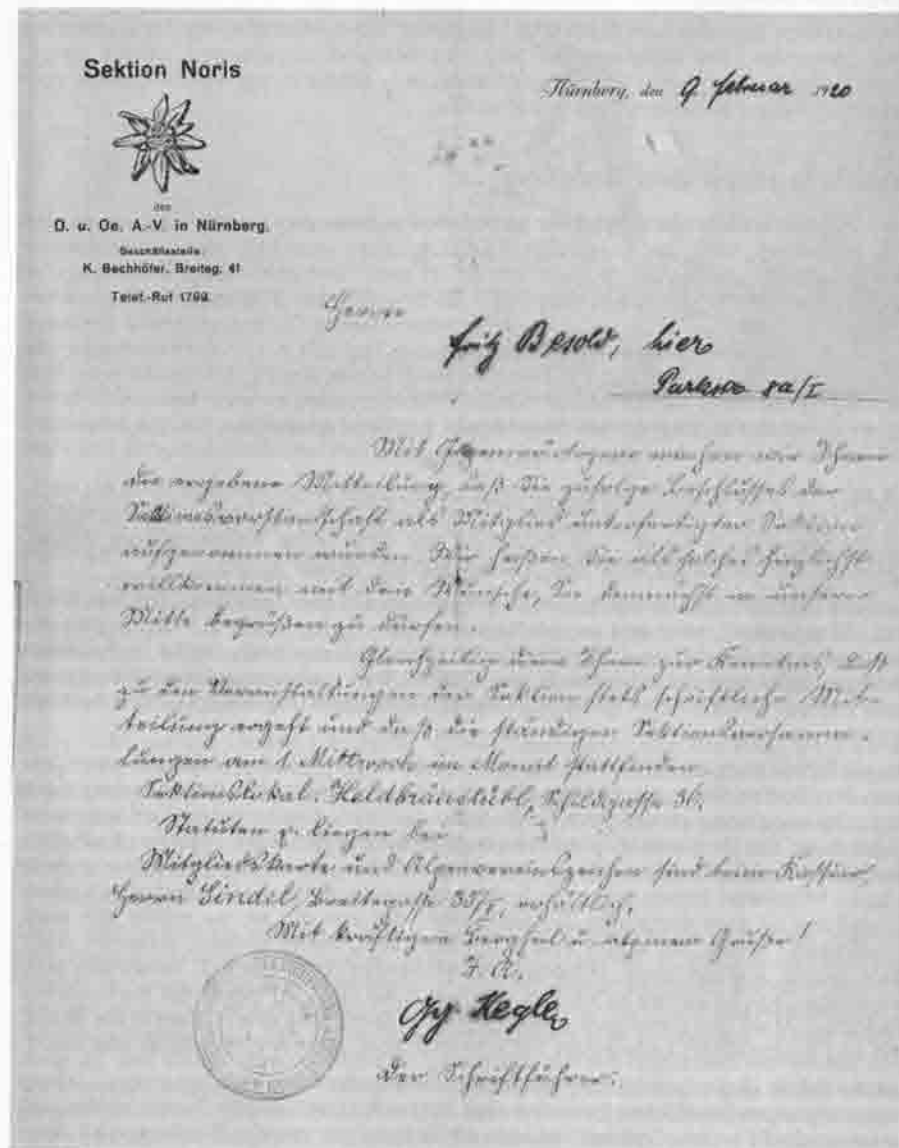 Sektion Noris
Nürnberg, den 9. Februar 1920
des
D. u. Oe. A.-V. in Nürnberg.
Geschäftsstelle:
K. Bechhöfer, Breiteg. 41
Telef.-Ruf 1769.
Herrn
Fritz Besold, hier
8a/I
Mit Gegenwärtigem machen wir Ihnen
die ergebene Mitteilung, daß Sie zufolge Beschlusses der
Sektionsvorstandschaft als Mitglied unterfertigter Sektion
aufgenommen wurden. Wir heißen Sie als solches herzlichst
willkommen mit dem Wunsche, Sie demnächst in unserer
Mitte begrüßen zu dürfen.
Gleichzeitig diene Ihnen zur Kenntnis, daß
zu den Veranstaltungen der Sektion stets schriftliche Mit-
teilung ergeht und daß die ständigen Sektionsversamm-
lungen am 1. Mittwoch im Monat stattfinden.
Sektionslokal: Schildgasse
Statuten liegen bei.
Mitgliedskarte und Alpenvereinszeichen sind beim Kassier,
Herrn Lindil, Breitegasse 35/I, erhältlich.
Mit kräftigem Bergheil u. alpinem Gruße!
I. A.
Gg. Kegler
der Schriftführer.